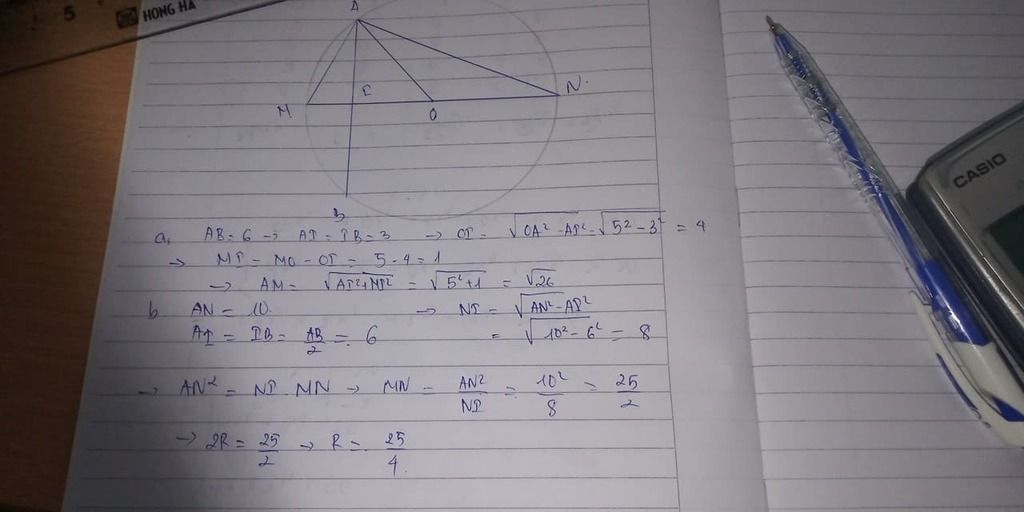 5 HONG HA
A
M I O N
B
CASIO
a, AB = 6 → AI = IB = 3 → OI = √OA² - AI² = √5² - 3² = 4
→ MI = MO - OI = 5 - 4 = 1
→ AM = √AI² + MI² = √5² + 1 = √26
b AN = 10. → NI = √AN² - AI²
AI = IB = AB/2 = 6 = √10² - 6² = 8
→ AN² = NI . MN → MN = AN²/NI = 10²/8 = 25/2
→ 2R = 25/2 → R = 25/4.